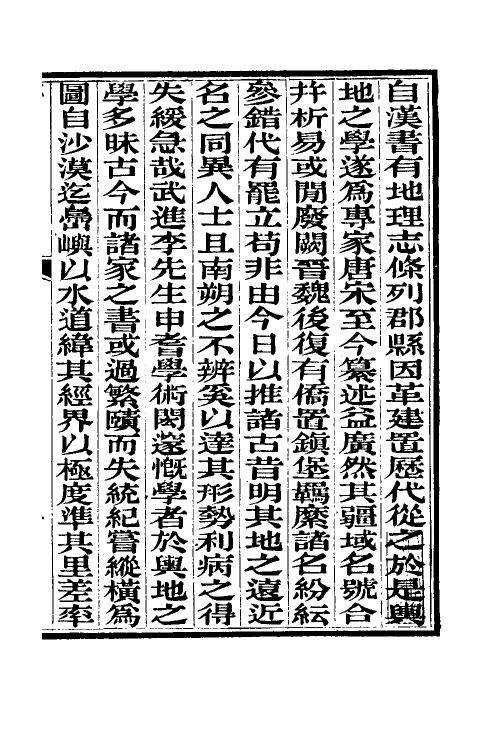 自漢書有地理志條列郡縣因革建置歷代從之於是輿
地之學遂爲專家唐宋至今纂述益廣然其疆域名號合
幷析易或閒廢闕晉魏後復有僑置鎮堡羈縻諸名紛紜
參錯代有罷立苟非由今日以推諸古昔明其地之遠近
名之同異人士且南朔之不辨奚以達其形勢利病之得
失緩急哉武進李先生申耆學術閎邃慨學者於輿地之
學多昧古今而諸家之書或過繁賾而失統紀嘗縱橫爲
圖自沙漠迄嶴嶼以水道緯其經界以極度準其里差率